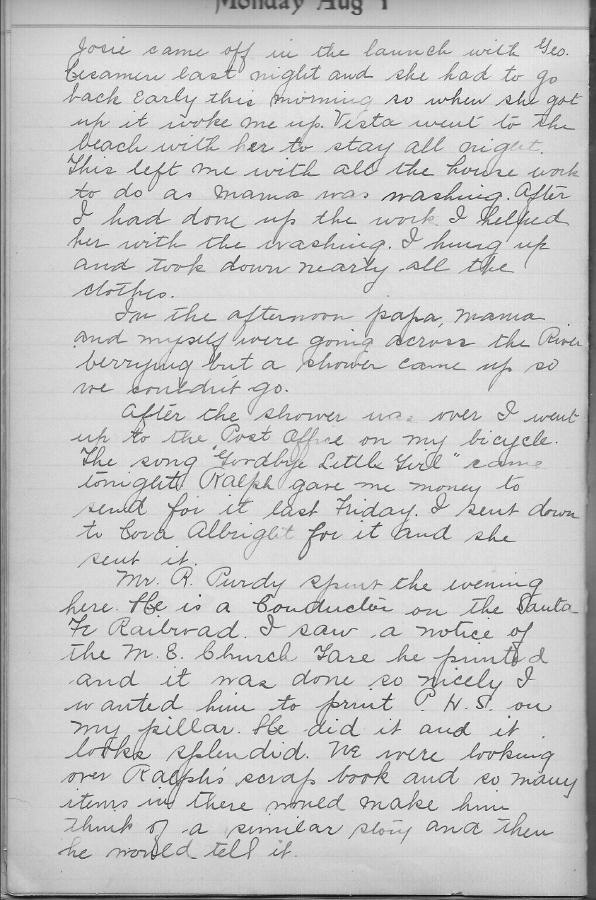 Monday Aug 1
Josie came off in the launch with Geo.
last night and she had to go
back early this morning so when she got
up it woke me up. Vista went to the
beach with her to stay all night.
This left me with all the house work
to do as mama was washing. After
I had done up the work I helped
her with the washing. I hung up
and took down nearly all the
clothes.
In the afternoon papa, mama
and myself were going across the River
berrying but a shower came up so
we couldnt go.
After the shower was over I went
up to the Post Office on my bicycle.
The song "Goodbye Little Girl" came
tonight. Ralph gave me money to
send for it last Friday. I sent down
to Cora Albright for it and she
sent it.
Mr. R. Purdy spent the evening
here. He is a Conductor on the Santa
Fe Railroad. I saw a notice of
the M. E. Church Fare he printed
and it was done so nicely I
wanted him to print P. H. S. on
my pillar. He did it and it
looks splendid. We were looking
over Ralph's scrap book and so many
items in there would make him
think of a similar story and then
he would tell it.